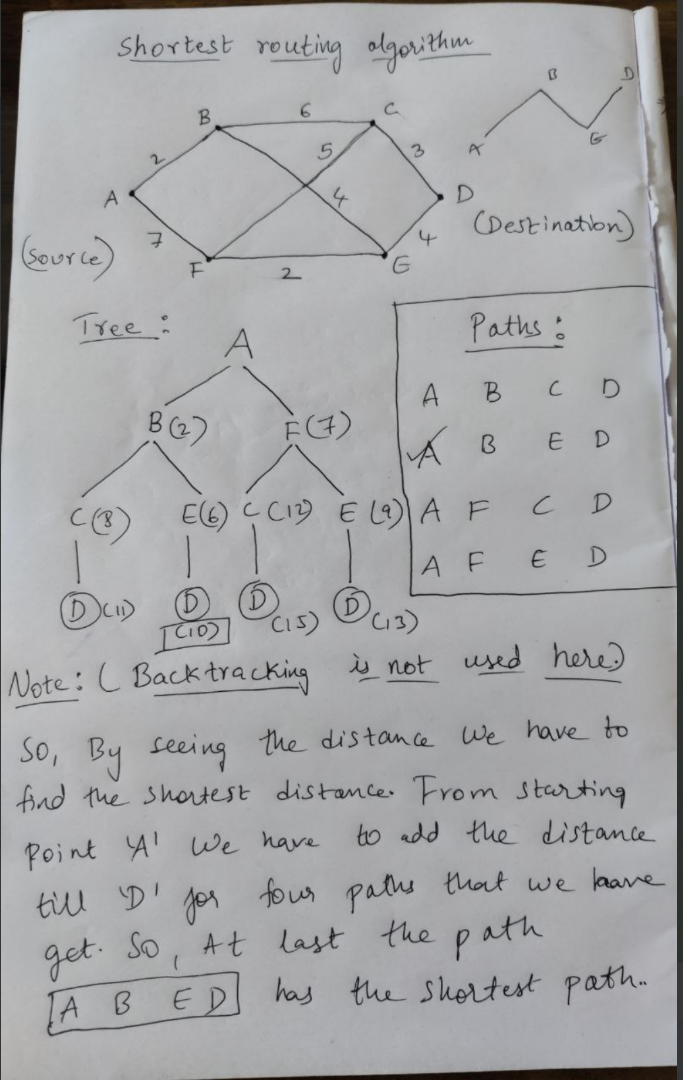 Shortest routing algorithm
B 6 C
B D
2 5 3
A E
A 4 D
(Source) 7 4 (Destination)
F 2 E
Tree :
A
B(2) F(7)
C(8) E(6) C(12) E(9)
D(11) D(10) D(15) D(13)
Paths :
A B C D
✓A B E D
A F C D
A F E D
Note: ( Backtracking is not used here.)
So, By seeing the distance we have to
find the shortest distance. From starting
point 'A' We have to add the distance
till 'D' for four paths that we have
get. So, At last the path
A B E D has the shortest path..